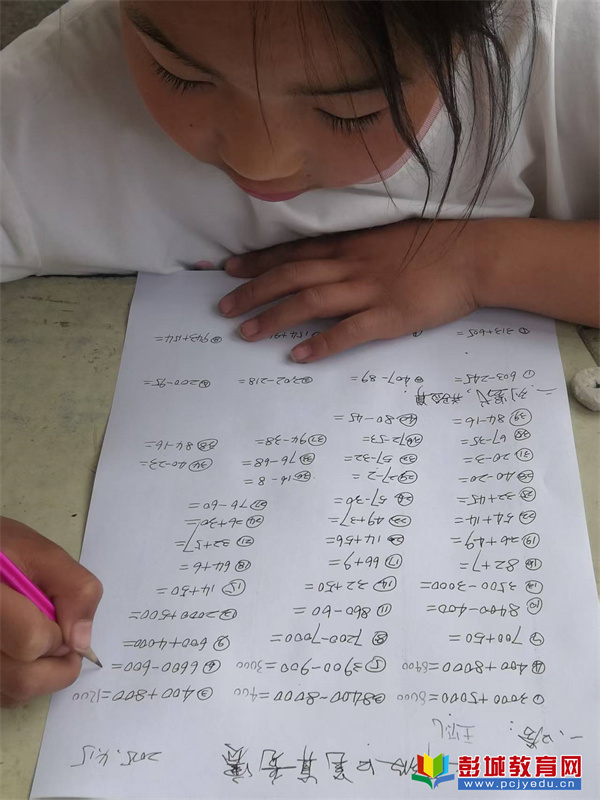 口算竞赛 2025.4.15
一、口答:
①3000+5000=8000 ②8400-8000=400 ③400+800=1200
④400+8000=8400 ⑤3900-900=3000 ⑥6600-600=
⑦700+50= ⑧7200-7000= ⑨600+4000=
⑩8400-400= ⑪860-60= ⑫2000+5000=
⑬3500-3000= ⑭32+50= ⑮14+50=
⑯82+7= ⑰66+9= ⑱64+6=
⑲26+49= ⑳14+56= ㉑32+57=
㉒54+14= ㉓49+37= ㉔26+36=
㉕32+45= ㉖57-30= ㉗76-60=
㉘40-20= ㉙27-2= ㉚16-8=
㉛20-3= ㉜57-32= ㉝76-68= ㉞40-23=
㉟67-35= ㊱72-53= ㊲94-38= ㊳84-16=
㊴84-16= ㊵80-45=
二、列竖式,并验算
①603-245= ②407-89= ③302-218= ④200-95=
313+605= 943+154=
彭城教育网
www.pcjyedu.cn